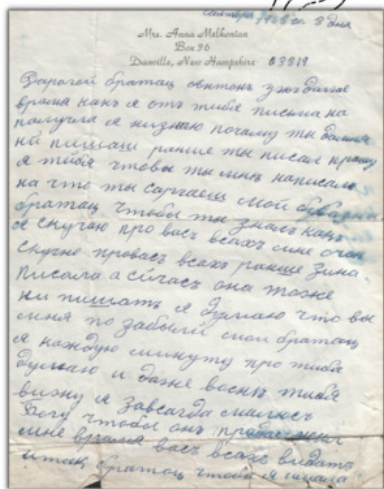 1968 г. 8 дня
Mrs. Anna Melkonian
Box 96
Danville, New Hampshire 03819
Дарогой братац антонъ ужъ давно
время какъ я отъ тибя письма на
палучла я низнаю почаму ты
ни пишаш ранше ты писал прашу
я тибя чтобы ты мнѣ написалъ
на что ты сарчаеш мой
братац чтобы ты зналъ какъ
я скучаю про васъ всѣхъ мне очен
скучно провасъ всахъ ранше Зина
писала а сичасъ она тоже
ни пишатъ я думаю что вы
миня по забыли мои братац
я каждую минуту про тибя
думаю и даже воснѣ тибя
вижу я завсегда малюсъ
Богу чтобы онъ
мне время васъ всахъ видать
братац чтобы я